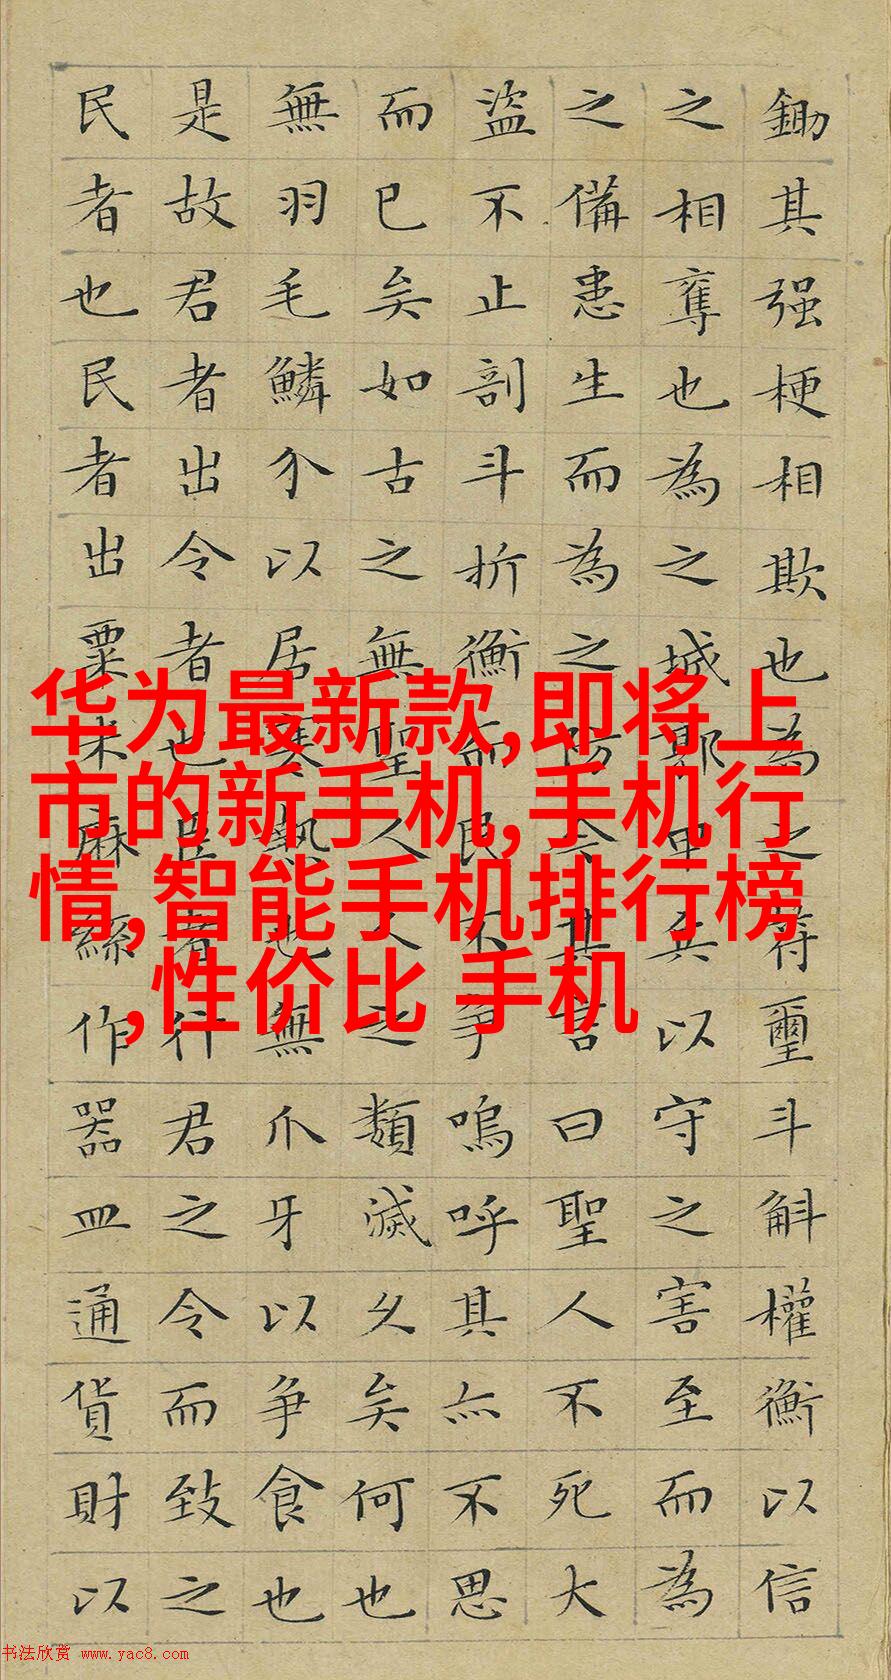 鋤其强梗相欺也為之符璽斗斛權衡以信
之相奪也為之城郭甲兵以守之害至而為
之備患生而為之防今其言曰聖人不死大
盜不止剖斗折衡而民不爭嗚呼其亦不思
而已矣如古之無聖人人之類滅久矣何也
無羽毛鱗介以居寒熱也無爪牙以爭食也
是故君者出令者也臣者行君之令而致之
民者也民者出粟米麻絲作器皿通貨財以
华为最新款,即将上
市的新手机,手机行
情,智能手机排行榜
,性价比 手机
书法欣赏 www.yac8.com